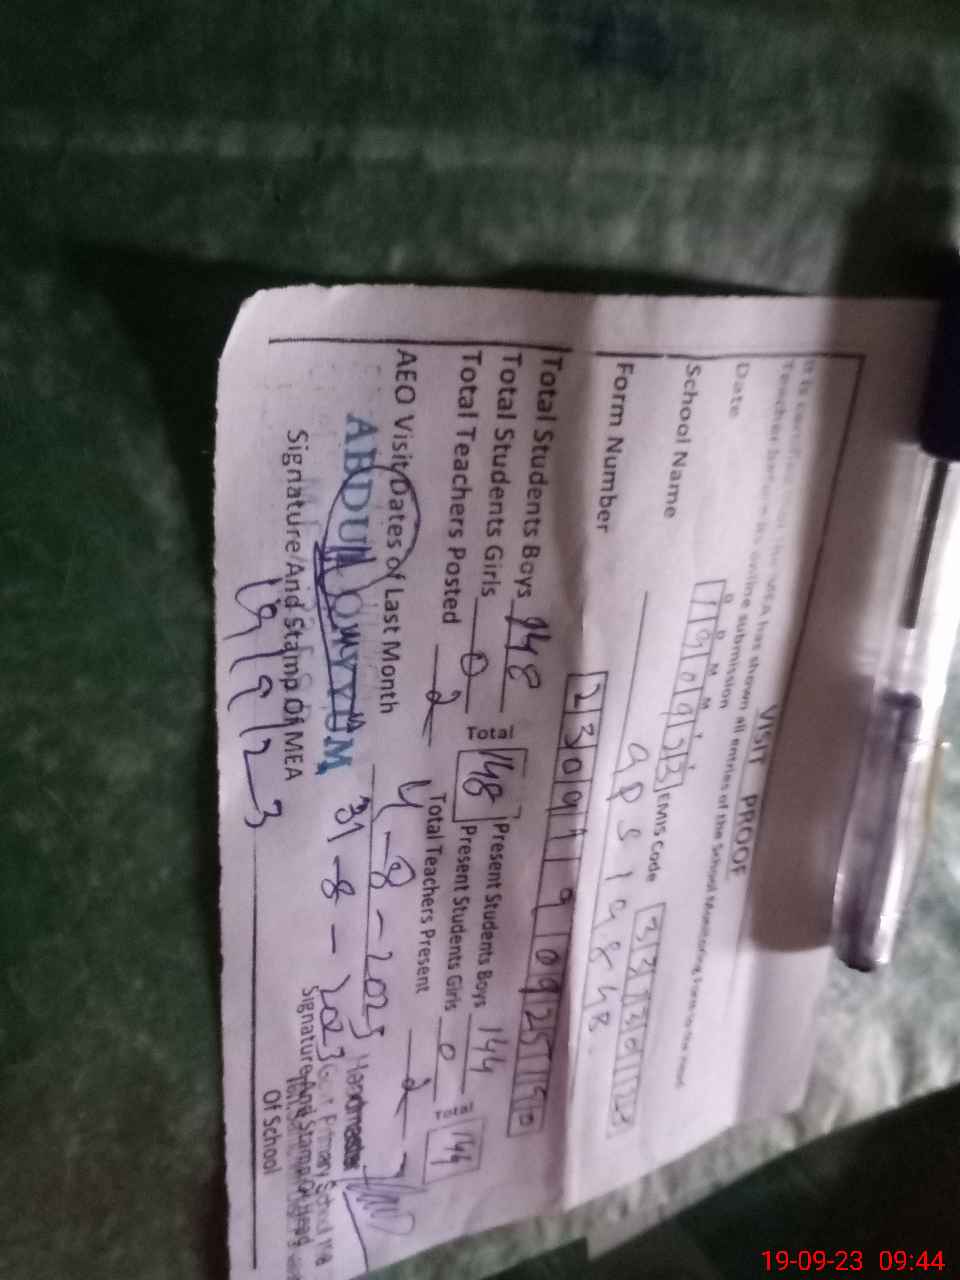 VISIT PROOF
It is certified that the MEA has shown all entries of the School Monitoring Form to the Head
Teacher before its online submission
Date D D M M Y Y
190923 EMIS Code
School Name GPS 198 4B
Form Number 230919
Total Students Boys 148 Present Students Boys 144
Total Students Girls 0 Total 148 Present Students Girls 0 Total 144
Total Teachers Posted 2 Total Teachers Present 2
AEO Visit Dates of Last Month 4-8-2023
31-8-2023
ABDUL QAYYUM
Headmaster
Govt Primary School
Signature And Stamp Of MEA
Signature And Stamp Of Head
Of School
19 9 23
19-09-23 09:44